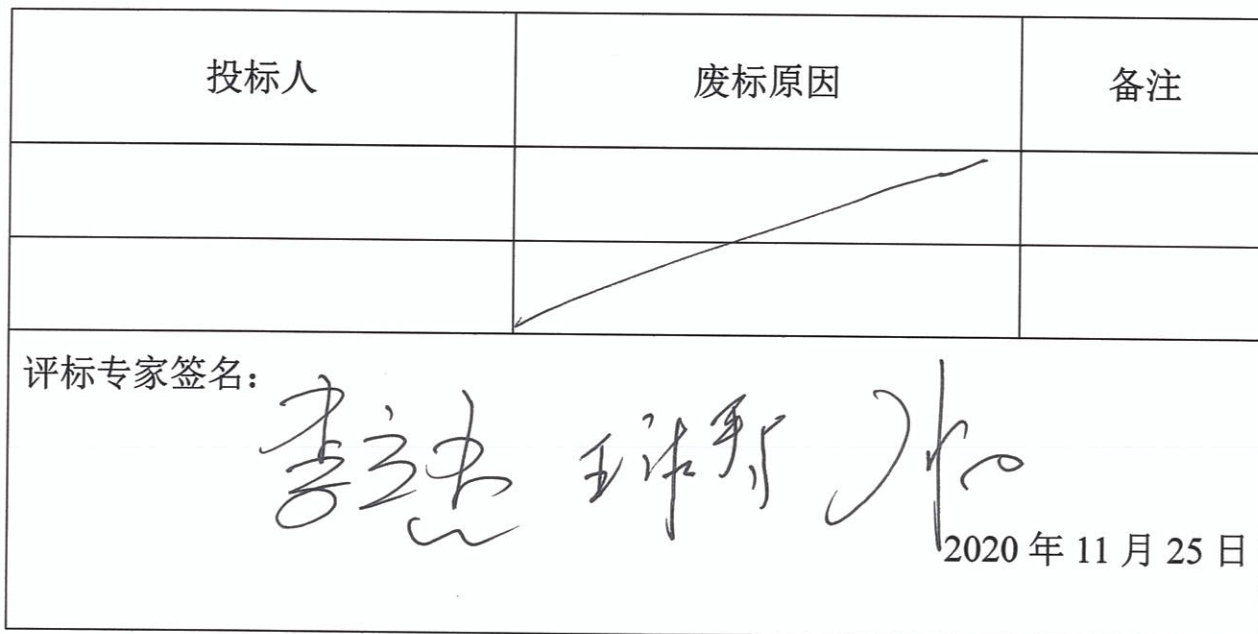 投标人 废标原因 备注
评标专家签名：
李立杰
2020 年 11 月 25 日